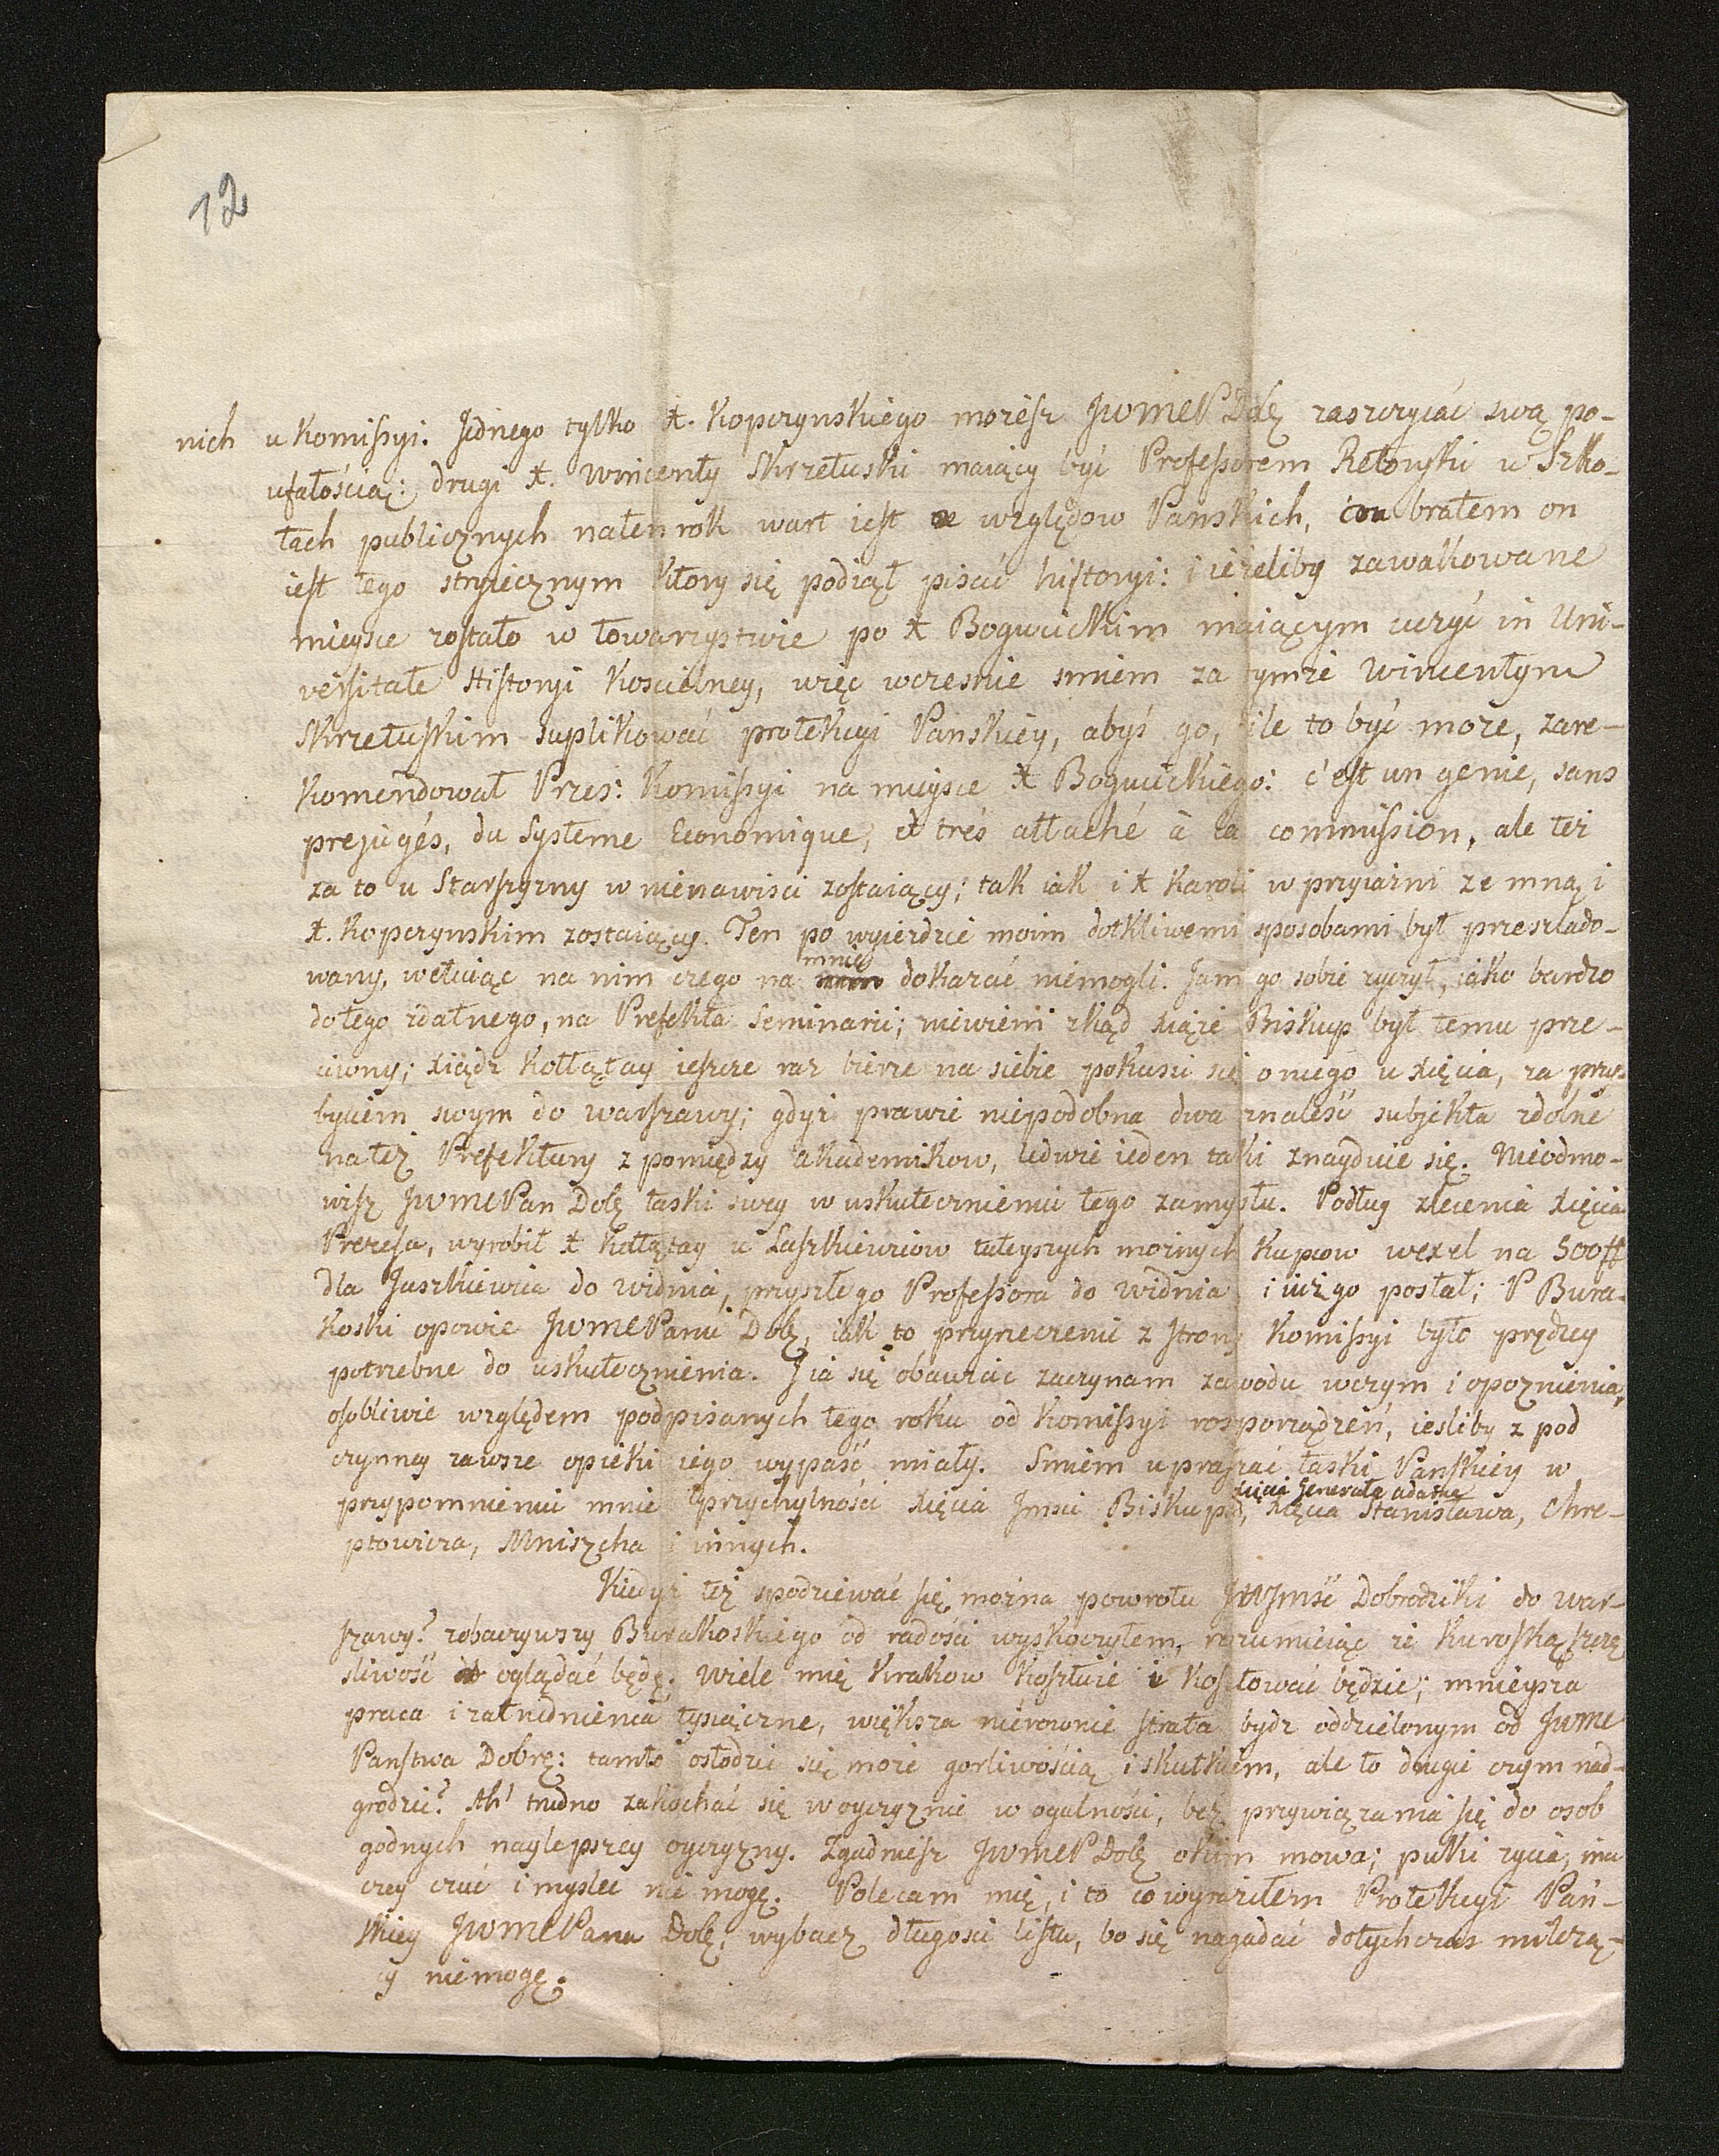 12
nich u Komissyi. Jednego tylko X. Kopczynskiego możesz JWMCP Dolę zaszczycać swą po-
ufałością: drugi X. Wincenty Skrzetuski maiący być Professorem Retoryki w Szko-
łach publicznych naten rok wart iest względow Panskich, bratem on
iest tego stryiecznym ktory się podiął pisać historyi: i ieżeliby zawakowane
mieysce zostało w towarzystwie po X Bogucickim maiącym uczyć in Uni-
versitate Historyi Koscielney, więc wczesnie smiem za tymże Wincentym
Skrzetuskim suplikować protekcyi Panskiey, abyś go, ile to być może, zare-
komendował Przes: Komissyi na mieysce X Bogucickiego: c'est un genie, sans
prejugés, du Systeme Economique, et trés attaché à la commission, ale też
za to u Starszyzny w nienawisci zostaiący; tak iak i X Karoli w przyiazni ze mną i
X. Kopczynskim zostaiący. Ten po wyiezdzie moim dotkliwemi sposobami był przesztado-
wany, wetuiąc na nim czego na mnie dokazać niemogli. Jam go sobie życzył, iako bardzo
dotego zdatnego, na Prefekta Seminarii; niewiem zkąd xiąże Biskup był temu prze-
ciwny; xiądz Kołłątay ieszcze raz bierze na siebie pokusić się oniego u xięcia, za przy-
byciem swym do warszawy; gdyż prawie niepodobna dwa znaleść subjekta zdolne
natęż Prefektury z pomiędzy akademikow, ledwie ieden taki znayduie się. Nieodmo-
wisz JWMCPan Dolę łaski swey w uskutecznieniu tego zamysłu. Podług zlecenia xięcia
Prezesa, wyrobił X Kołłątay u Laszkiewiczow tuteyszych możnych kupcow wexel na 500#
dla Jaszkiewicza do widnia, przyszłego Professora do widnia i iuż go posłał; P Bura-
koski opowie JWMCPanu Dolę, iak to przyrzeczenie z strony Komissyi było prędzey
potrzebne do uskutecznienia. J ia się obawiac zaczynam zawodu wczym i opoznienia,
osobliwie względem podpisanych tego roku od Komissyi rosporządzeń, iesliby z pod
czynney zawsze opieki iego wypaść miały. Smiem upraszać łaski Panskiey w
przypomnieniu mnie przychylności xięcia Jmsci Biskupa, xięcia Jenerała adama, xięcia Stanisława, Chre-
ptowicza, Mniszcha i innych.
Kiedyż też spodziewać się można powrotu JWJmść Dobrodziki do war-
szawy? zobaczywszy Burakoskiego od radości wyskoczyłem, rozumieiąc że Kurofską szczę
sliwość oglądać będę. Wiele mię Krakow kosztuie i kosztować będzie; mnieysza
praca i zatrudnienia tysiączne, większa nierownie strata bydz oddzielonym od JWMC
Panstwa Dobrę: tamto osłodzić się może gorliwością i skutkiem, ale to drugie czym nad-
grodzić? Ah! trudno zakochać się w oyczyznie w ogulności, bez przywiązania się do osob
godnych naylepszey oyczyzny. Zgadniesz JWMCP Dolę okim mowa; puki zycia, ina
czey czuć i myslec nie mogę. Polecam mię, i to co wyraziłem Protekcyi Pań-
skiey JWMCPana Dolę; wybacz długosci listu, bo się nagadać dotychczas milczą-
cy niemogę.